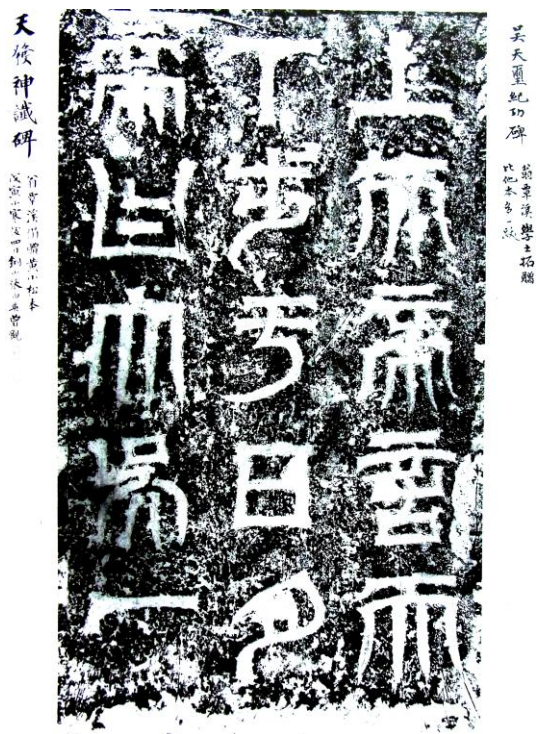 吴天璽紀功碑
翁覃溪學士拓贈
比他本多一
上天帝言天
下步于日月
帝曰大吳一
天發神讖碑
翁覃溪所贈黄小松本
戊寅小寒後四日